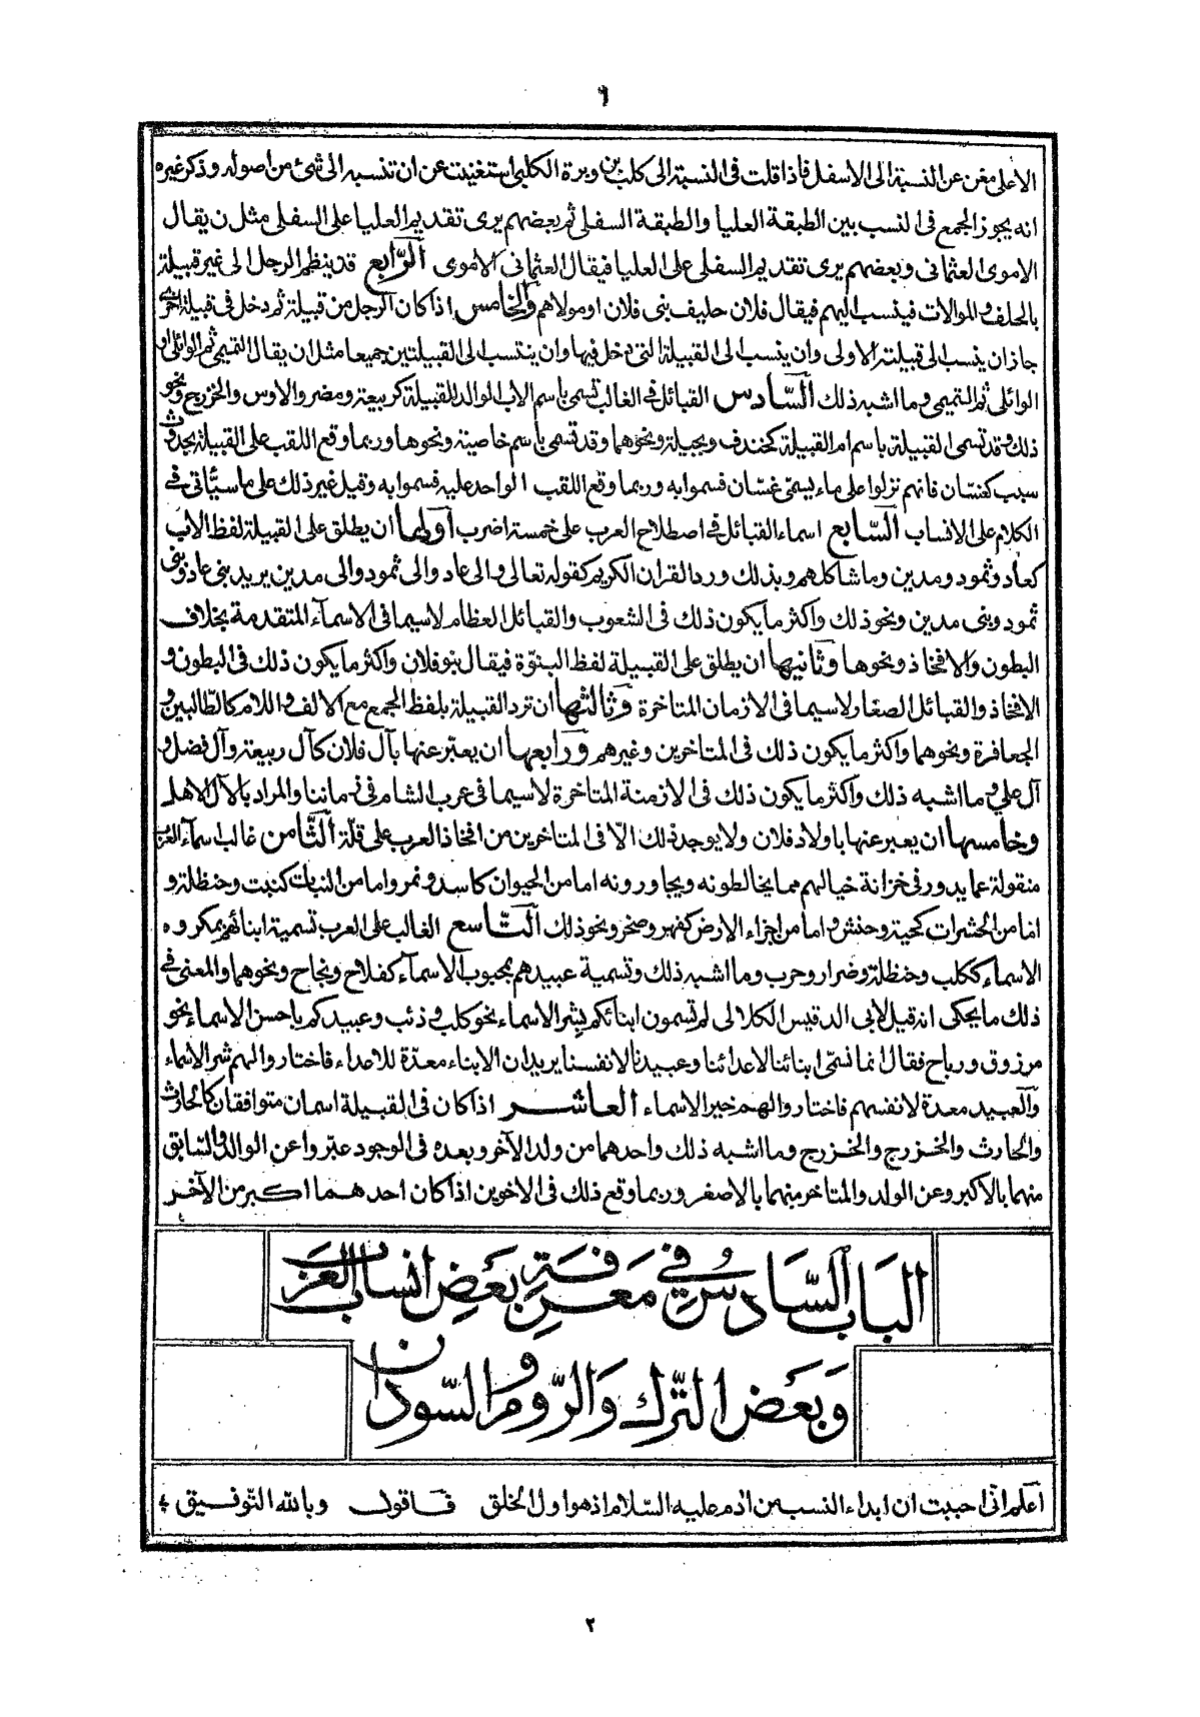 ٦
الاعلى مغن عن النسبة الى الاسفل فاذا قلت فى النسبة الى كلب بن وبرة الكلبى استغنيت عن ان تنسبه الى شئ من اصوله وذكر غيره
انه يجوز الجمع فى النسب بين الطبقة العليا والطبقة السفلى ثم بعضهم يرى تقديم العليا على السفلى مثل ن يقال
الاموى العثمانى وبعضهم يرى تقديم السفلى على العليا فيقال العثمانى الاموى الرّابع قد ينظم الرجل الى غير قبيلة
بالحلف والموالات فينسب اليهم فيقال فلان حليف بنى فلان او مولاهم والخامس اذا كان الرجل من قبيلة ثم دخل فى قبيلة اخرى
جاز ان ينسب لى قبيلته الاولى وان ينسب لى القبيلة التى دخل فيها وان ينتسب لى القبيلتين جميعا مثل ان يقال التميمى ثم الوائلى او
الوائلى ثم التميمى وما اشبه ذلك السّادس القبائل فى الغالب تسمى باسم الاب الوالد للقبيلة كربيعة ومضر والاوس والخزرج ونحو
ذلك وقد تسمى القبيلة باسم ام القبيلة كخندف وبجيلة ونحوهما وقد تسمى باسم خاصية ونحوها وربما وقع اللقب على القبيلة بحدوث
سبب كغسّان فانهم نزلوا على ماء يسمى غسّان فسموا به وربما وقع اللقب الواحد عليه فسموا به وقيل غير ذلك على ما سيأتى فى
الكلام على الانساب السّابع اسماء القبائل فى اصطلاح العرب على خمسة اضرب اولها ان يطلق على القبيلة لفظ الاب
كعاد وثمود ومدين وما شاكلهم وبذلك ورد القران الكريم كقوله تعالى والى عاد والى ثمود والى مدين يريد بنى عاد وبنى
ثمود وبنى مدين ونحو ذلك واكثر ما يكون ذلك فى الشعوب والقبائل العظام لاسيما فى الاسمآء المتقدمة بخلاف
البطون والافخاذ ونحوها وثانيها ان يطلق على القبيلة لفظ البنوّة فيقال بنو فلان واكثر ما يكون ذلك فى البطون و
الافخاذ والقبائل الصغار لاسيما فى الازمان المتاخرة وثالثها ان ترد القبيلة بلفظ الجمع مع الالف واللام كالطالبين و
الجعافرة ونحوهما واكثر ما يكون ذلك فى المتاخرين وغيرهم ورابعها ان يعبّر عنها بآل فلان كآل ربيعة وآل فضل و
آل على وما اشبه ذلك واكثر ما يكون ذلك فى الازمنة المتاخرة لاسيما فى عرب الشام فى زماننا والمراد بالآل الاهل
وخامسها ان يعبر عنها باولاد فلان ولا يوجد ذلك الّا فى المتاخرين من افخاذ العرب على قلّة الثّامن غالب سمآء العرب
منقولة عما يدور فى خزانة خيالهم مما يخالطونه ويجاورونه اما من الحيوان كاسد ونمر واما من النبات كنبت وحنظلة و
اما من الحشرات كحية وحنش واما من اجزاء الارض كفهر وصخر ونحو ذلك التّاسع الغالب على العرب تسمية ابنائهم بمكروه
الاسماء ككلب وحنظلة وضرار وحرب وما اشبه ذلك وتسمية عبيدهم بمحبوب الاسمآء كفلاح ونجاح ونحوهما والمعنى فى
ذلك ما يحكى انه قيل لابى الدقيس الكلالى لم تسمون ابنائكم بشر الاسماء نحو كلب وذئب وعبيدكم باحسن الاسماء نحو
مرزوق ورباح فقال انما نسمّى ابنائنا لاعدائنا وعبيدنا لانفسنا يريد ان الابناء معدّة للاعداء فاختاروا لهم شر الاسماء
والعبيد معدة لانفسهم فاختاروا لهم خير الاسماء العاشر اذا كان فى القبيلة اسمان متوافقان كالحارث
والحارث والخزرج والخزرج وما اشبه ذلك واحدهما من ولد الآخر وبعده فى الوجود عبّروا عن الوالد والسّابق
منهما بالاكبر وعن الولد والمتاخر منهما بالاصغر وربما وقع ذلك فى الاخوين اذا كان احدهما اكبر من الآخر
الباب السّادس فى معرفة بعض انساب العرب
وبعض الترك والرّوم والسّودان
اعلم انّى احببت ان ابداء النسب من آدم عليه السّلام اذ هو اول الخلق فاقول وبالله التّوفيق
٢